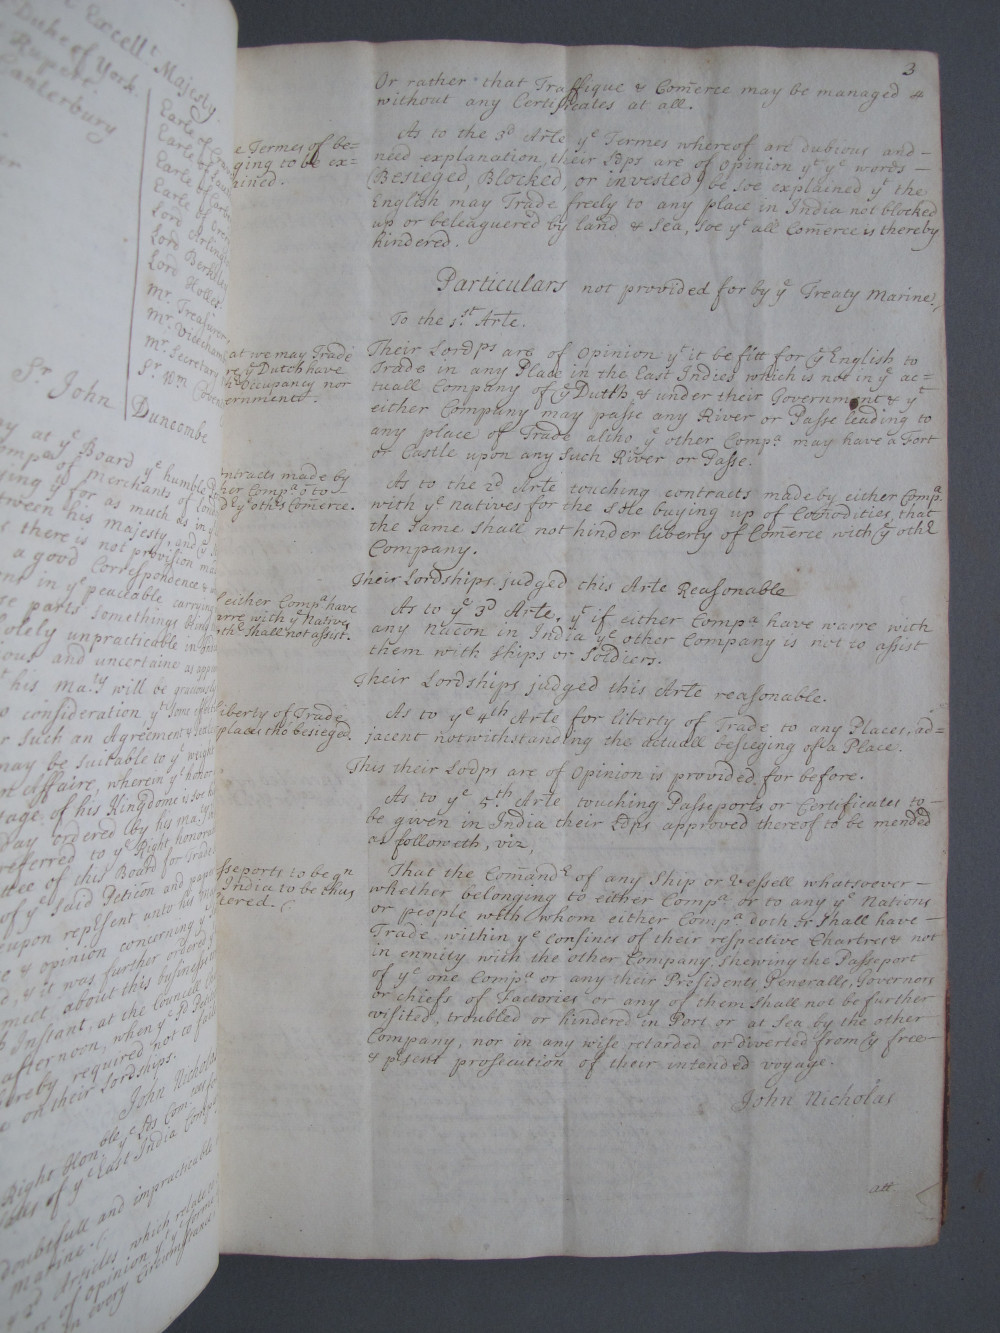 e Excell.t Majesty
Duke of York.
Rupert.
Canterbury
Earle of
Earle of
Earle of
Earle of
Lord Arlington
Lord Berkeley
Lord Holles
Mr. Treasurer
Mr. Vicecham
Mr. Secretary
Sr. Wm Coven
Sr. John Duncombe
ay at ye Board ye humble
Comp.a of Merchants of Lon
ying yt for as much as in ye
tween his Majesty, and ye
there is not provision ma
a good Correspondence &
in ye peaceable carrying
se parts something being
Solely unpracticable in
ious and uncertaine as appea
t his Ma.ty will be graciously
consideration yt some effect
r such an Agreement &
may be suitable to ye weight
nt Affaire, wherein ye honor
age of his Kingdome is soe
Day ordered by his Ma.ty
referred to ye Right honora
ttee of this Board for Trade
of ye said Peticon and pape
eupon represent unto his
e & opinion concerning ye
d, yt it was further ordered
meet about this businesse
Instant, at the Councell
afternoon, when ye
hereby required not to faile
on their Lordships.
John Nicholas
Right Hon:ble ye Lds Com
of ye East India Compa
doubtfull and impracticable
Marine.
Articles which relate
of opinion yt ye
in every Circumstance
3
Or rather that Traffique & Com̄erce may be managed &
without any Certificates at all.
e Termes of be=
ging to be ex=
ained.
As to the 3d Arte, ye Termes whereof are dubious and
need explanation, their Ldps are of Opinion yt ye words
(Besieged, Blocked, or invested) be soe explained yt the
English may Trade freely to any place in India not blocked
up or beleaguered by land & Sea, soe yt all Com̄erce is thereby
hindered.
Particulars not provided for by ye Treaty Marine.
To the 1.st Arte.
at we may Trade
re ye Dutch have
Occupancy nor
ernment.
Their Lordps are of Opinion yt it be fitt for ye English to
Trade in any Place in the East Indies which is not in ye ac=
tuall Company of ye Dutch & under their Government & yt
either Company may passe any River or Passe leading to
any place of Trade altho ye other Compa may have a Fort
or Castle upon any such River or Passe.
ntracts made by
her Compa to
d ye others Comerce.
As to the 2d Arte touching contracts made by either Compa
with ye natives for the Sole buying up of Com̄odities, that
the same shall not hinder liberty of Com̄erce with ye other
Company.
Their Lordships judged this Arte Reasonable
f either Compa have
arre with ye Natives
rther shall not assist.
As to ye 3d Arte, yt if either Compa have warre with
any nacōn in India ye other Company is not to assist
them with ships or Soldiers.
Their Lordships judged this Arte reasonable.
liberty of Trade
places tho besieged.
As to ye 4th Arte for liberty of Trade to any Places, ad=
jacent notwithstanding the actuall besieging of a Place.
This their Lodps are of Opinion is provided for before.
As to ye 5.th Arte touching Passeports or Certificates to
be given in India their Ldps approved thereof to be mended
as followeth, viz.
sseports to be gn
India to be thus
tered.
That the Com̄andr of any Ship or Vessell whatsoever
whether belonging to either Compa or to any ye Nations
or people with whom either Compa doth or shall have
Trade, within ye confines of their respective Charters & not
in enmity with the other Company, shewing the Passeport
of ye one Compa or any their Presidents Generalls, Governors
or chiefs of Factories or any of them shall not be further
visited, troubled or hindered in Port or at Sea by the other
Company, nor in any wise retarded or diverted from ye free
& psent prosecution of their intended voyage.
John Nicholas
att